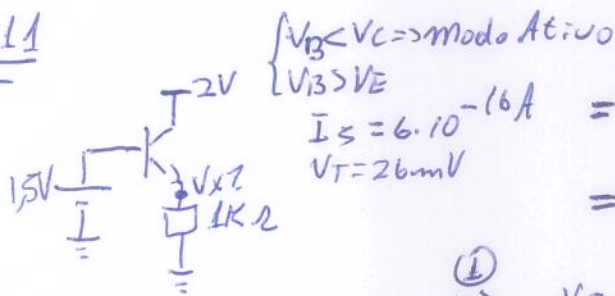 11
VB<VC=>modo Ativo
VB>VE
2V
IS=6.10^-16A =
VT=26mV
1,5V
Vx?
1KΩ
=
①